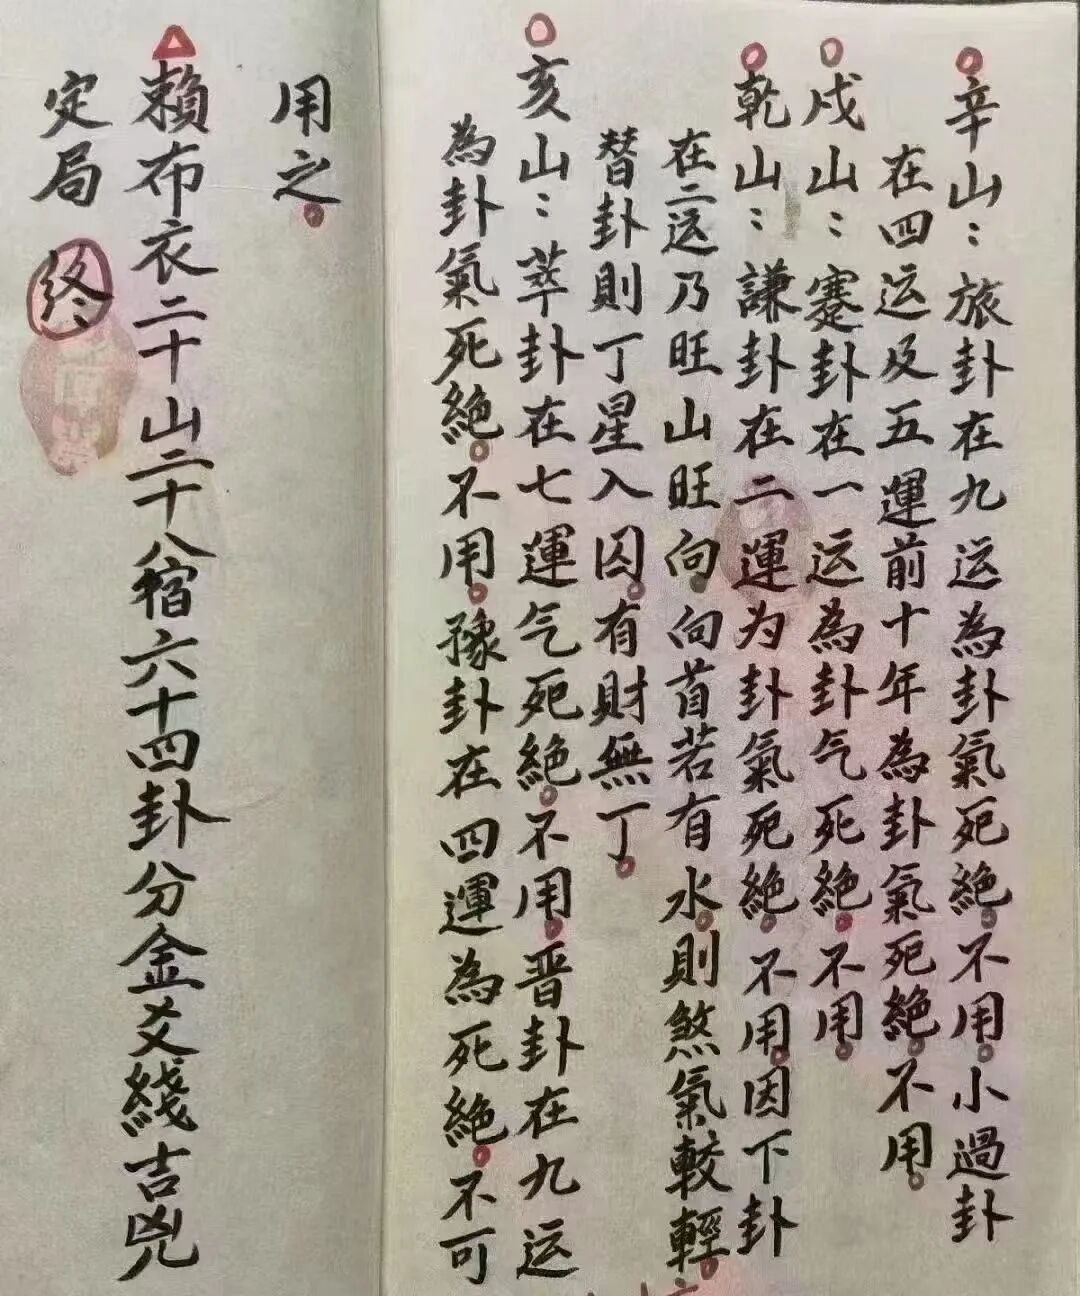 辛山：旅卦在九运為卦氣死絶。不用。小過卦
在四运及五運前十年為卦氣死絶。不用。
戍山：蹇卦在一运為卦气死絶。不用。
乾山：謙卦在二運为卦氣死絶。不用。因下卦
在二运乃旺山旺向。向首若有水。則煞氣較輕。
替卦則丁星入囚。有財無丁。
亥山：萃卦在七運气死絶。不用。晋卦在九运
為卦氣死絶。不用。豫卦在四運為死絶。不可
用之。
賴布衣二十山二十八宿六十四卦分金爻綫吉兇
定局 终